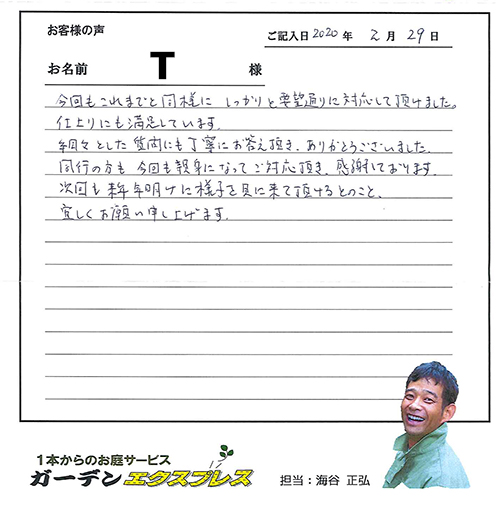 お客様の声
ご記入日 2020 年 2 月 29 日
お名前 T 様
今回もこれまでと同様に しっかりと要望通りに対応して頂けました。
仕上りにも満足しています。
細々とした質問にも丁寧にお答え頂き、ありがとうございました。
同行の方も 今回も親身になってご対応頂き、感謝しております。
次回も来年明けに様子を見に来て頂けるとのこと、
宜しくお願い申し上げます。
1本からのお庭サービス
ガーデンエクスプレス
担当：海谷 正弘